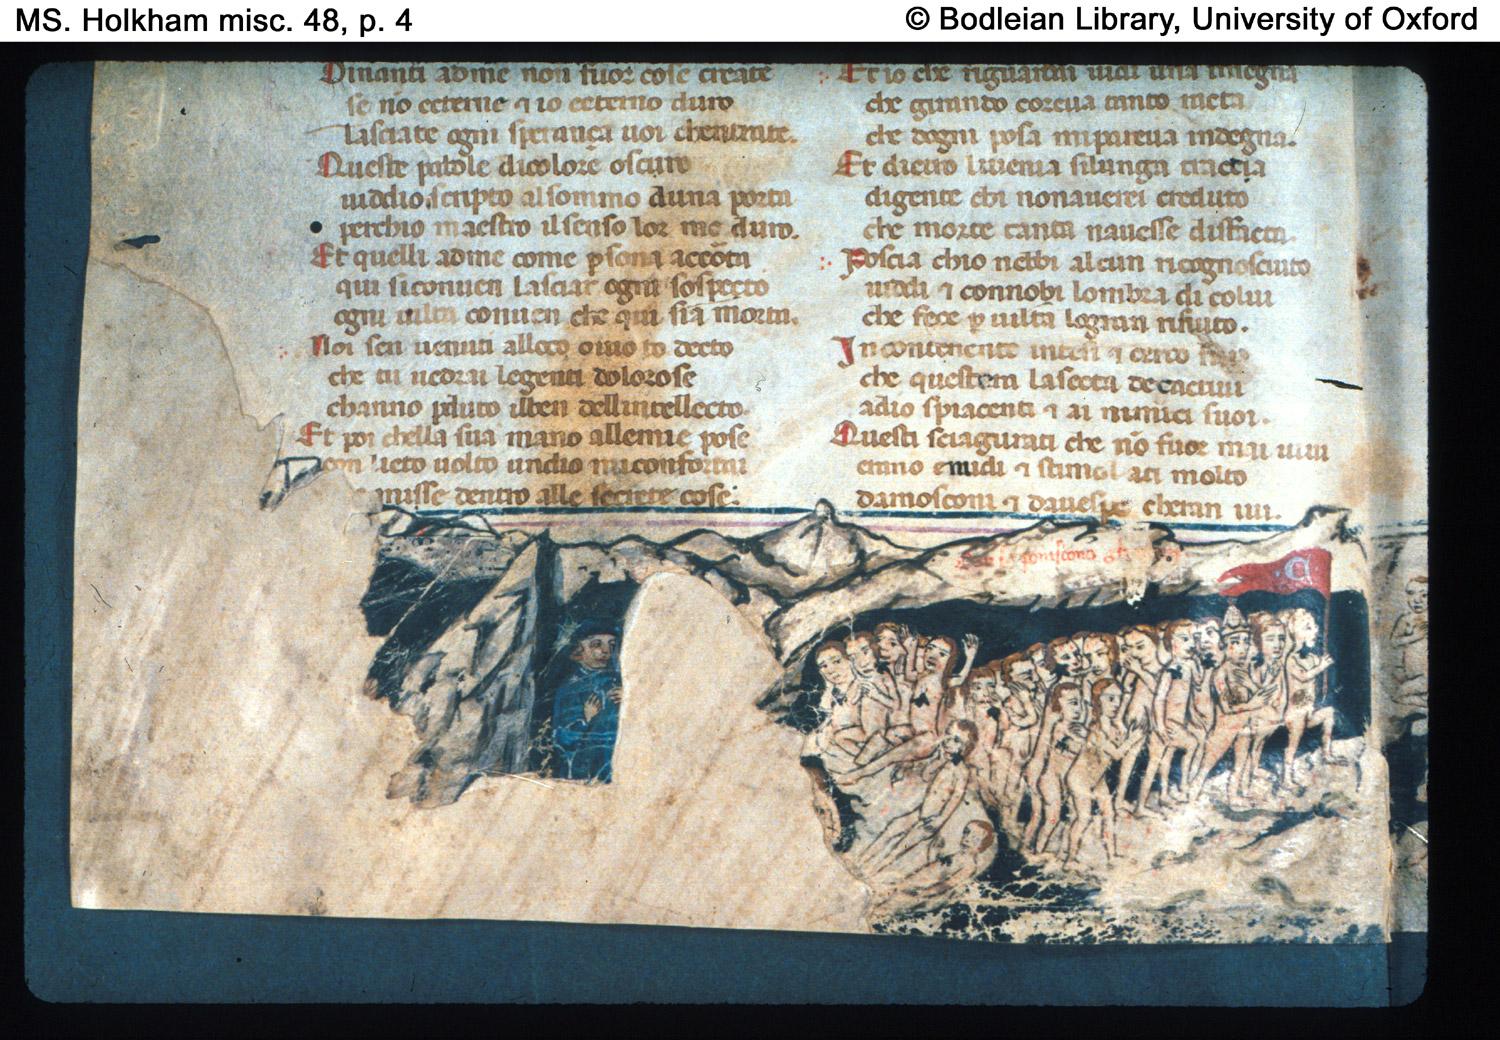 MS. Holkham misc. 48, p. 4
© Bodleian Library, University of Oxford
Dinanti ad me non fuor cose create
se nō eterne ⁊ io eterno duro
lasciate ogni sperança uoi
Queste parole di colore oscuro
uiddio scripto al sommo duna porta
perchio maestro il senso lor mē duro.
Et quelli ad me come psona accōta
qui si conuen lasciar ogni sospecto
ogni uilta conuen che qui sia morta.
Noi sen uenuti alloco ouio to decto
che tu uedrai le genti dolorose
channo pduto il ben dell intellecto.
Et poi chella sua mano alle mie pose
con lieto uolto undio mi confortai
misse dentro alle secrete cose.
Et io che riguardai uidi una insegna
che girando correua tanto
che dogni posa mi pareua indegna.
Et dietro li uenia si lunga tractia
di gente chi non auerei creduto
che morte tanta nauesse disfacta.
Poscia chio nebbi alcun ricognosciuto
uiddi ⁊ connobi lombra di colui
che fece p uilta logran rifiuto.
In contenente intesi ⁊ certo fui
che questera la secta de cactiui
adio spiacenti ⁊ ai nimici sui.
Questi sciagurati che nō fuor mai uiui
erano e stimolati molto
da mosconi ⁊ da uespe cheran iui.